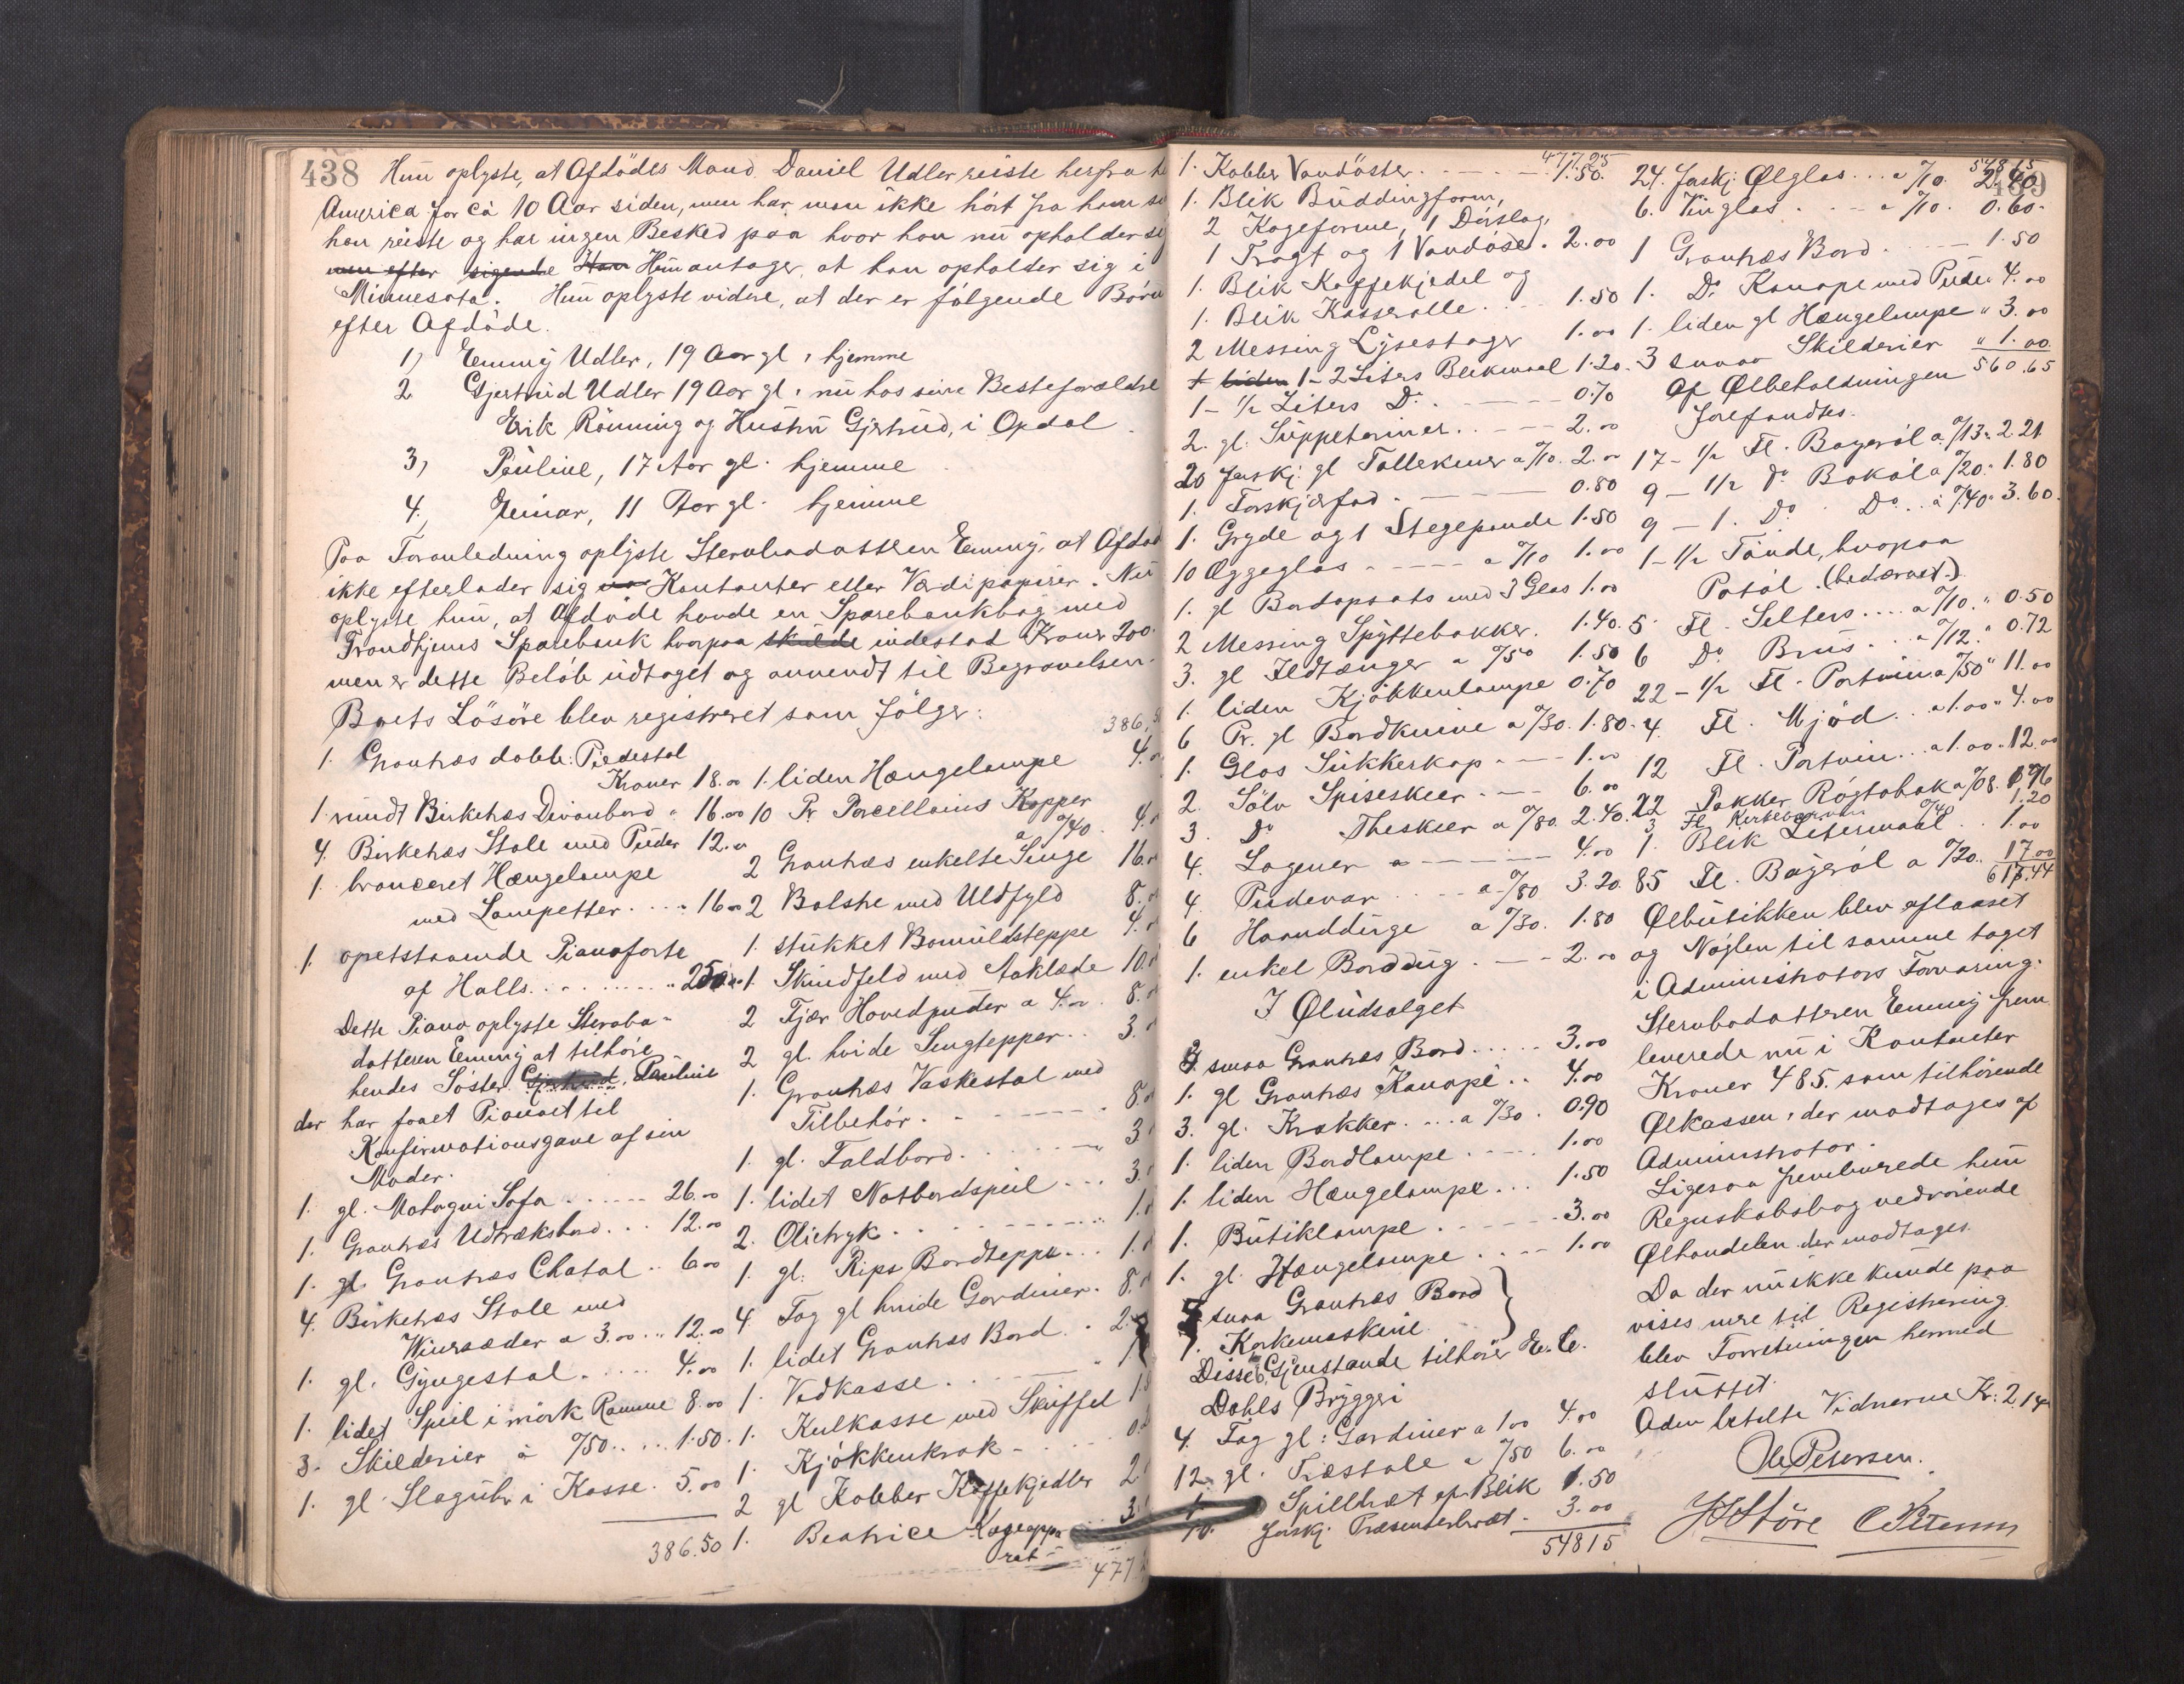 438
Hun oplyste, at Afdödes Mand Daniel Udler reiste herfra
America for ca 10 Aar siden, men har man ikke hört fra ham
han reiste og har ingen Besked paa hvor han nu opholder
men efter sigende Han Hun antager, at han opholder sig i
Minnesota. Hun oplyste videre, at der er fölgende Börn
efter Afdöde.
1) Emmy Udler, 19 Aar gl, hjemme
2 Gjertrud Udler 19 Aar gl, nu hos sine Besteforældre
Erik Rönning og Hustru Gjertrud, i Opdal
3, Pauline, 17 Aar gl. hjemme
4, Einar, 11 Aar gl. hjemme
Paa Foranledning oplyste Stervbodatteren Emmy, at Afdöd
ikke efterlader sig Kontanter eller Værdipapirer. Nu
oplyste hun, at Afdöde havde en Sparebankbog med
Trondhjems Sparebank hvorpaa skulde indestod Kroner 200.
men er dette Belöb udtaget og anvendt til Begravelsen.
Boets Lösöre blev registreret som fölger:
1. Grantræs dobb: Piedestal
Kroner 18.00
1. rundt Birketræs Divanbord " 16.00
4. Birketræs Stole med Puder 12.00
1. bronceret Hængelampe
med Lampetter .... 16.00
1. opretstaaende Pianoforte
af Halls ........ 250.00
Dette Piano oplyste Stervbo-
datteren Emmy at tilhöre
hendes Söster Gjertrud, Pauline
der har faaet Pianoet til
Konfirmationsgave af sin
Moder.
1. gl. Mahogni Sofa ..... 26.00
1. Grantræs Udtræksbord ... 12.00
1. gl. Grantræs Chatol .. 6.00
4. Birketræs Stole med
Wienersæder a 3.00 .. 12.00
1. gl. Gyngestol ..... 4.00
1. lidet Speil i mörk Ramme 8.00
3. Skilderier à %50 .... 1.50.
1. gl. Slaguhr i Kasse. 5.00
386.50
386.50
1. liden Hængelampe 4.00
10 Pr Porcellains Kopper
a %40. 4.
2 Grantræs enkelte Senge 16.
2 Bolstre med Uldfyld 8.
1. stukket Bomuldsteppe 4.
1. Skindfeld med Aaklæde 10.
2 Fjær Hovedpuder a 4.00. 8.
2 gl. hvide Sengtepper .. 3.
1. Grantræs Vaskestol med
Tilbehör. ...... 8.
1. gl. Foldbord ...... 3
1. lidet Natbordspeil ... 3.
2. Olietryk ........ 1.
1. gl. Rips Bordteppe ... 1.
4 Fag gl hvide Gardiner. 8.
1. lidet Grantræs Bord . 2.
1. Vedkasse .....
1. Kulkasse med Skuffel 1.
1. Kjökkenkrak ..... 0.
2 gl Kobber Kaffekjedler 2.
1. Beatrice Kogeappa
rat 3.
477.
477.25
1. Kobber Vandöster. ... 1.50.
1. Blik Buddingform,
2 Kageforme, 1 Dörslag,
1 Tragt og 1 Vandöse . 2.00
1. Blik Kaffekjedel og
1. Blik Kasserolle ... 1.50
2 Messing Lysestager 1.00
1 liden 1- 2 Liters Blikmaal 1.20.
1- ½ Liters Do. .... 0.70
2. gl. Suppeteriner .... 2.00
20 forskj. gl Tallekener a %10. 2.00
1. Forskjærfad. ..... 0.80
1. Gryde og 1 Stegepande 1.50
10 Æggeglas ..... a %10 1.00
1. gl Bordopsats med 3 Glas 1.00
2 Messing Spyttebakker. 1.40.
3. gl Ildtænger a %50 1.50
1. liden Kjökkenlampe 0.70
6 Pr. gl Bordknive a %30. 1.80.
1. Glas Sukkerkop .... 1.00
2. Sölv Spiseskeer .... 6.00
3. Do Theskeer a %80. 2.40.
4. Lagener a ...... 4.00
4. Pudevar .... a %80 3.20.
6 Haandduge a %30. 1.80
1. enkel Borddug .... 2.00
I Öludsalget
3. smaa Grantræs Bord ..... 3.00
1. gl Grantræs Kanapé .. 4.00
3. gl. Krakker .... a %30. 0.90
1. liden Bordlampe ..... 1.00
1. liden Hængelampe ... 1.50
1. Butiklampe ...... 3.00
1. gl. Hængelampe .... 1.00
4 smaa Grantræs Bord
1. Korkemaskine
Disse Gjenstande tilhörer E. C.
Dahls Bryggeri
4. Fag gl: Gardiner a 1.00 4.00
12 gl. Træstole a %50 6.00
1. Spillbræt af Blik 1.50
10. forskj. Præsenterbræt. 3.00
548 15
439
548 15
24. forskj. Ölglas ... a %10. 2.40
6. Vinglas .... a %10. 0.60.
1 Grantræs Bord. .... 1.50
1. Do Kanape med Puder 4.00
1. liden gl Hængelampe " 3.00
3 smaa Skilderier " 1.00
560.65
Af Ölbeholdningen
forefandtes.
17- ½ Fl. Bayeröl a %13. 2.21
9 - ½ Do Boköl a %20. 1.80
9 - 1. Do . Do .. à %40. 3.60.
1- ½ Tönde, hvorpaa
Potöl. (bedærvet.)
5. Fl. Selters .... a %10. " 0.50
6 Do Brus ... a %12. " 0.72
22 - ½ Fl. Portvin a %50 " 11.00
4. Fl. Mjöd ... a 1.00 " 4.00
12 Fl. Portvin ... a 1.00. 12.00
22 Pakker Rögtobak a %08. 1.76
3 Fl Kirkebærvin %40 1.20
1. Blik Litermaal .. 1.00
85 Fl. Bayeröl a %20. 17.00
617.44
Ölbutikken blev aflaaset
og Nöglen til samme taget
i Administrators Forvaring.
Stervbodatteren Emmy frem
leverede nu i Kontanter
Kroner 485. som tilhörende
Ölkassen, der modtages af
Administrator.
Ligesaa fremleverede hun
Regnskabsbog vedrörende
Ölhandelen der modtages.
Da der nu ikke kunde paa
vises mere til Registrering
blev Forretningen hermed
sluttet.
Aden betalte Vidnerne Kr: 2,14
Ole Petersen.
Störe